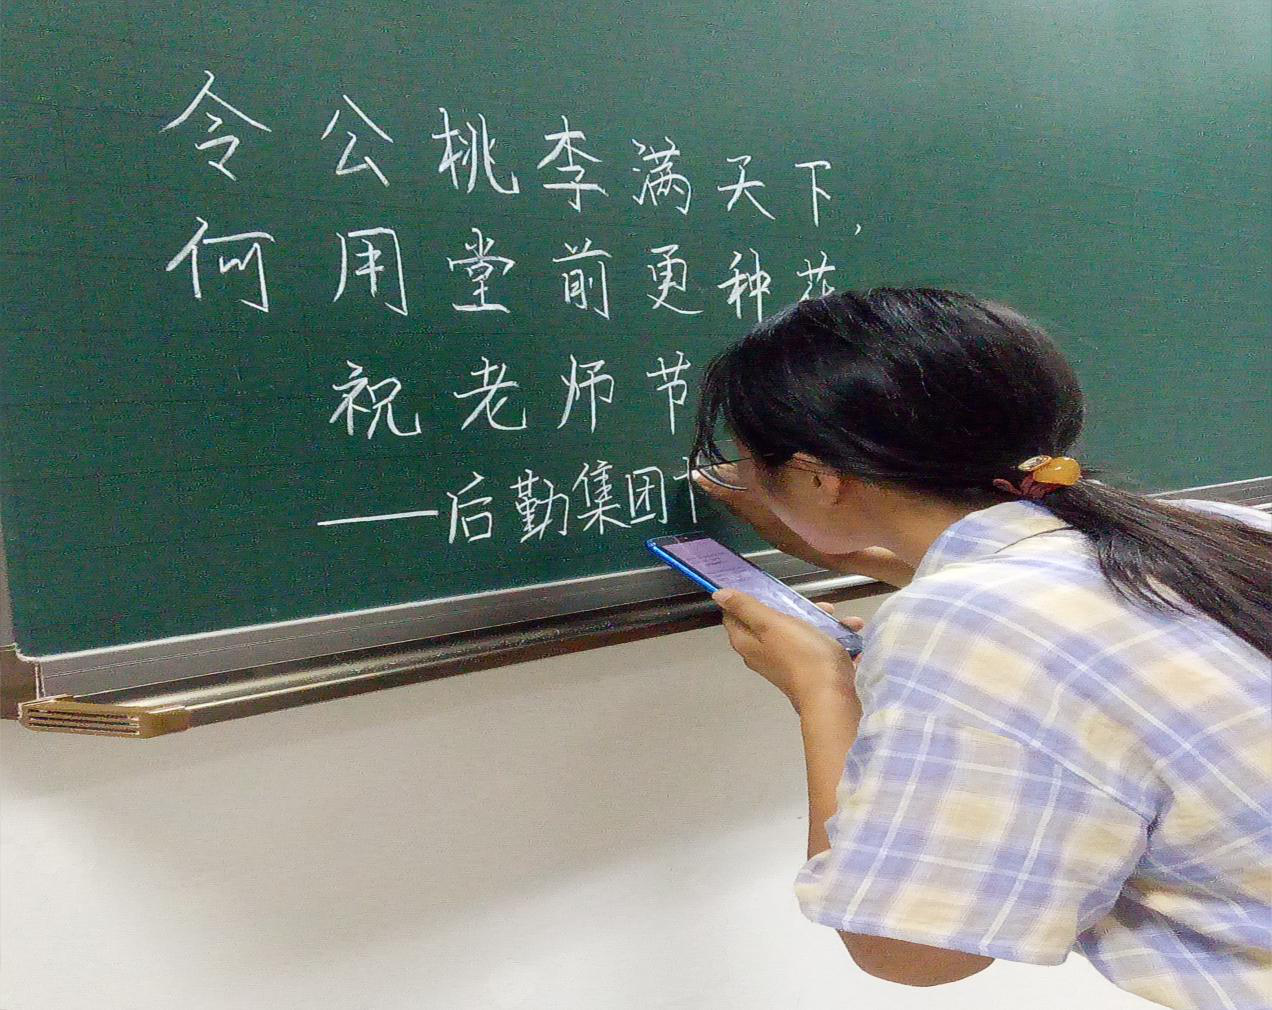 令公桃李满天下,
何用堂前更种花
祝老师节
——后勤集团